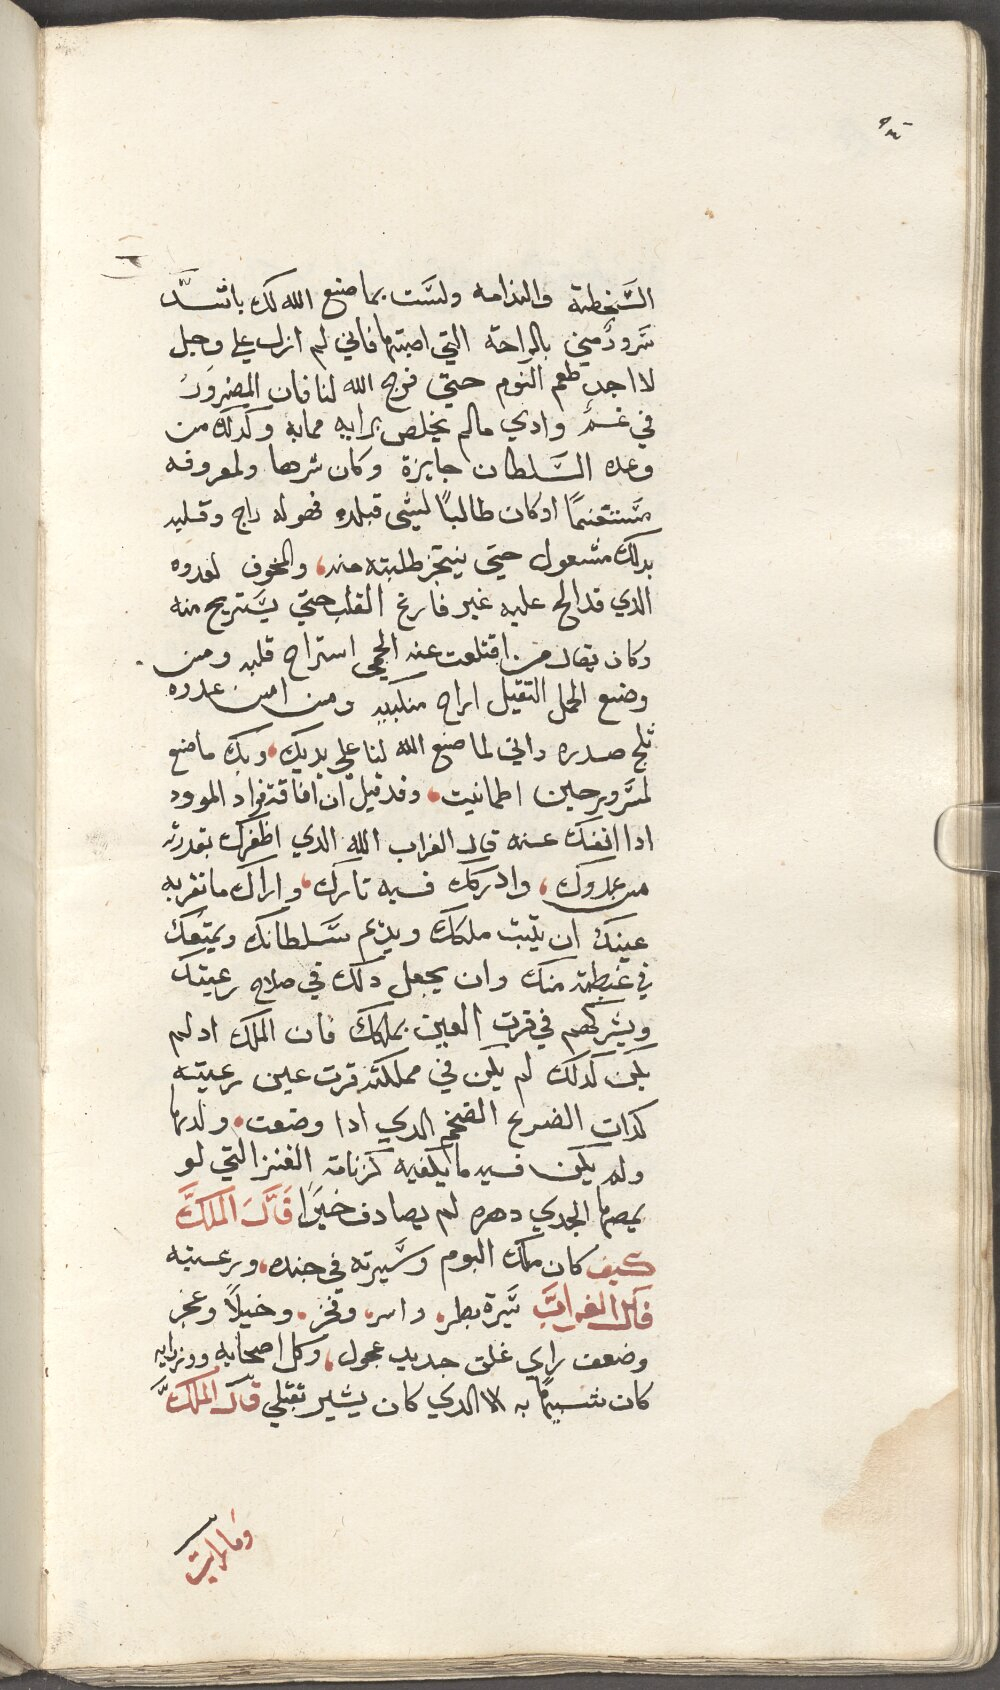 السَّخطة والندامه ولسَّت بما صنع الله لك باشدَّ
سَّرورٌ مني بالراحة التي اصبتها فاني لم ازل علي وجل
لا اجد طعم النوم حتي فرج الله لنا فان المضرور
في غمٍ وادي مالم يخلص برايه ممابه وكدلك من
وعده السَّلطان جايزة وكان شرها ولمعروفه
مسَّتغنمًا اوكان طالبًا لشي قبله فهو له راج وقلبه
بدلك مشعول حتي ينتجز طلبته منه، والمخوف لعدوه
الدي قد الح عليه غير فارغ القلب حتي يسَّتريح منه
وكان يقال من اقتلعت عنه الحمي استراح قلبه ومن
وضع الحمل التقيل اراح منكبيه ومن امن عدوه
ثلج صدره واني لما صنع الله لنا علي يديك، وبك ماضع
لمسَّرور حين اطمانيت، وقد قيل ان افاقة فواد المورد
ادا انفك عنه قال الغراب الله الدي اظفرك بقدرته
من عدوك، وادركك فيه تارك، واراك ماتقر به
عينك ان يثبت ملكك ويدعم سَّلطانك ويمتعك
في غبطة منك وان يجعل دلك في صلاح رعيتك
ويشركهم في قرت العين بملكك فان الملك ادلم
يكن كدلك لم يكن في مملكته قرت عين رعيته
كدات الضرع الضخم الدي ادا وضعت، ولدها
ولم يكن فيه مايكفيه كزنامة العنز التي لو
يمصها الجدي دهره لم يصادف خيرًا قَالَ الملكَّ
كيف كان ملك البوم وسَّيرته في جنده، ورعيته
قال الغرابَّ سَّيرة بطر، واسر، وفخر، وخيلاً وعجز
وضعف راي غلق جديب عجول، وكل اصحابه ووزرايه
كان شبيهًا به الا الدي كان يشير بقتلي قال الملكَّ
وما رايت